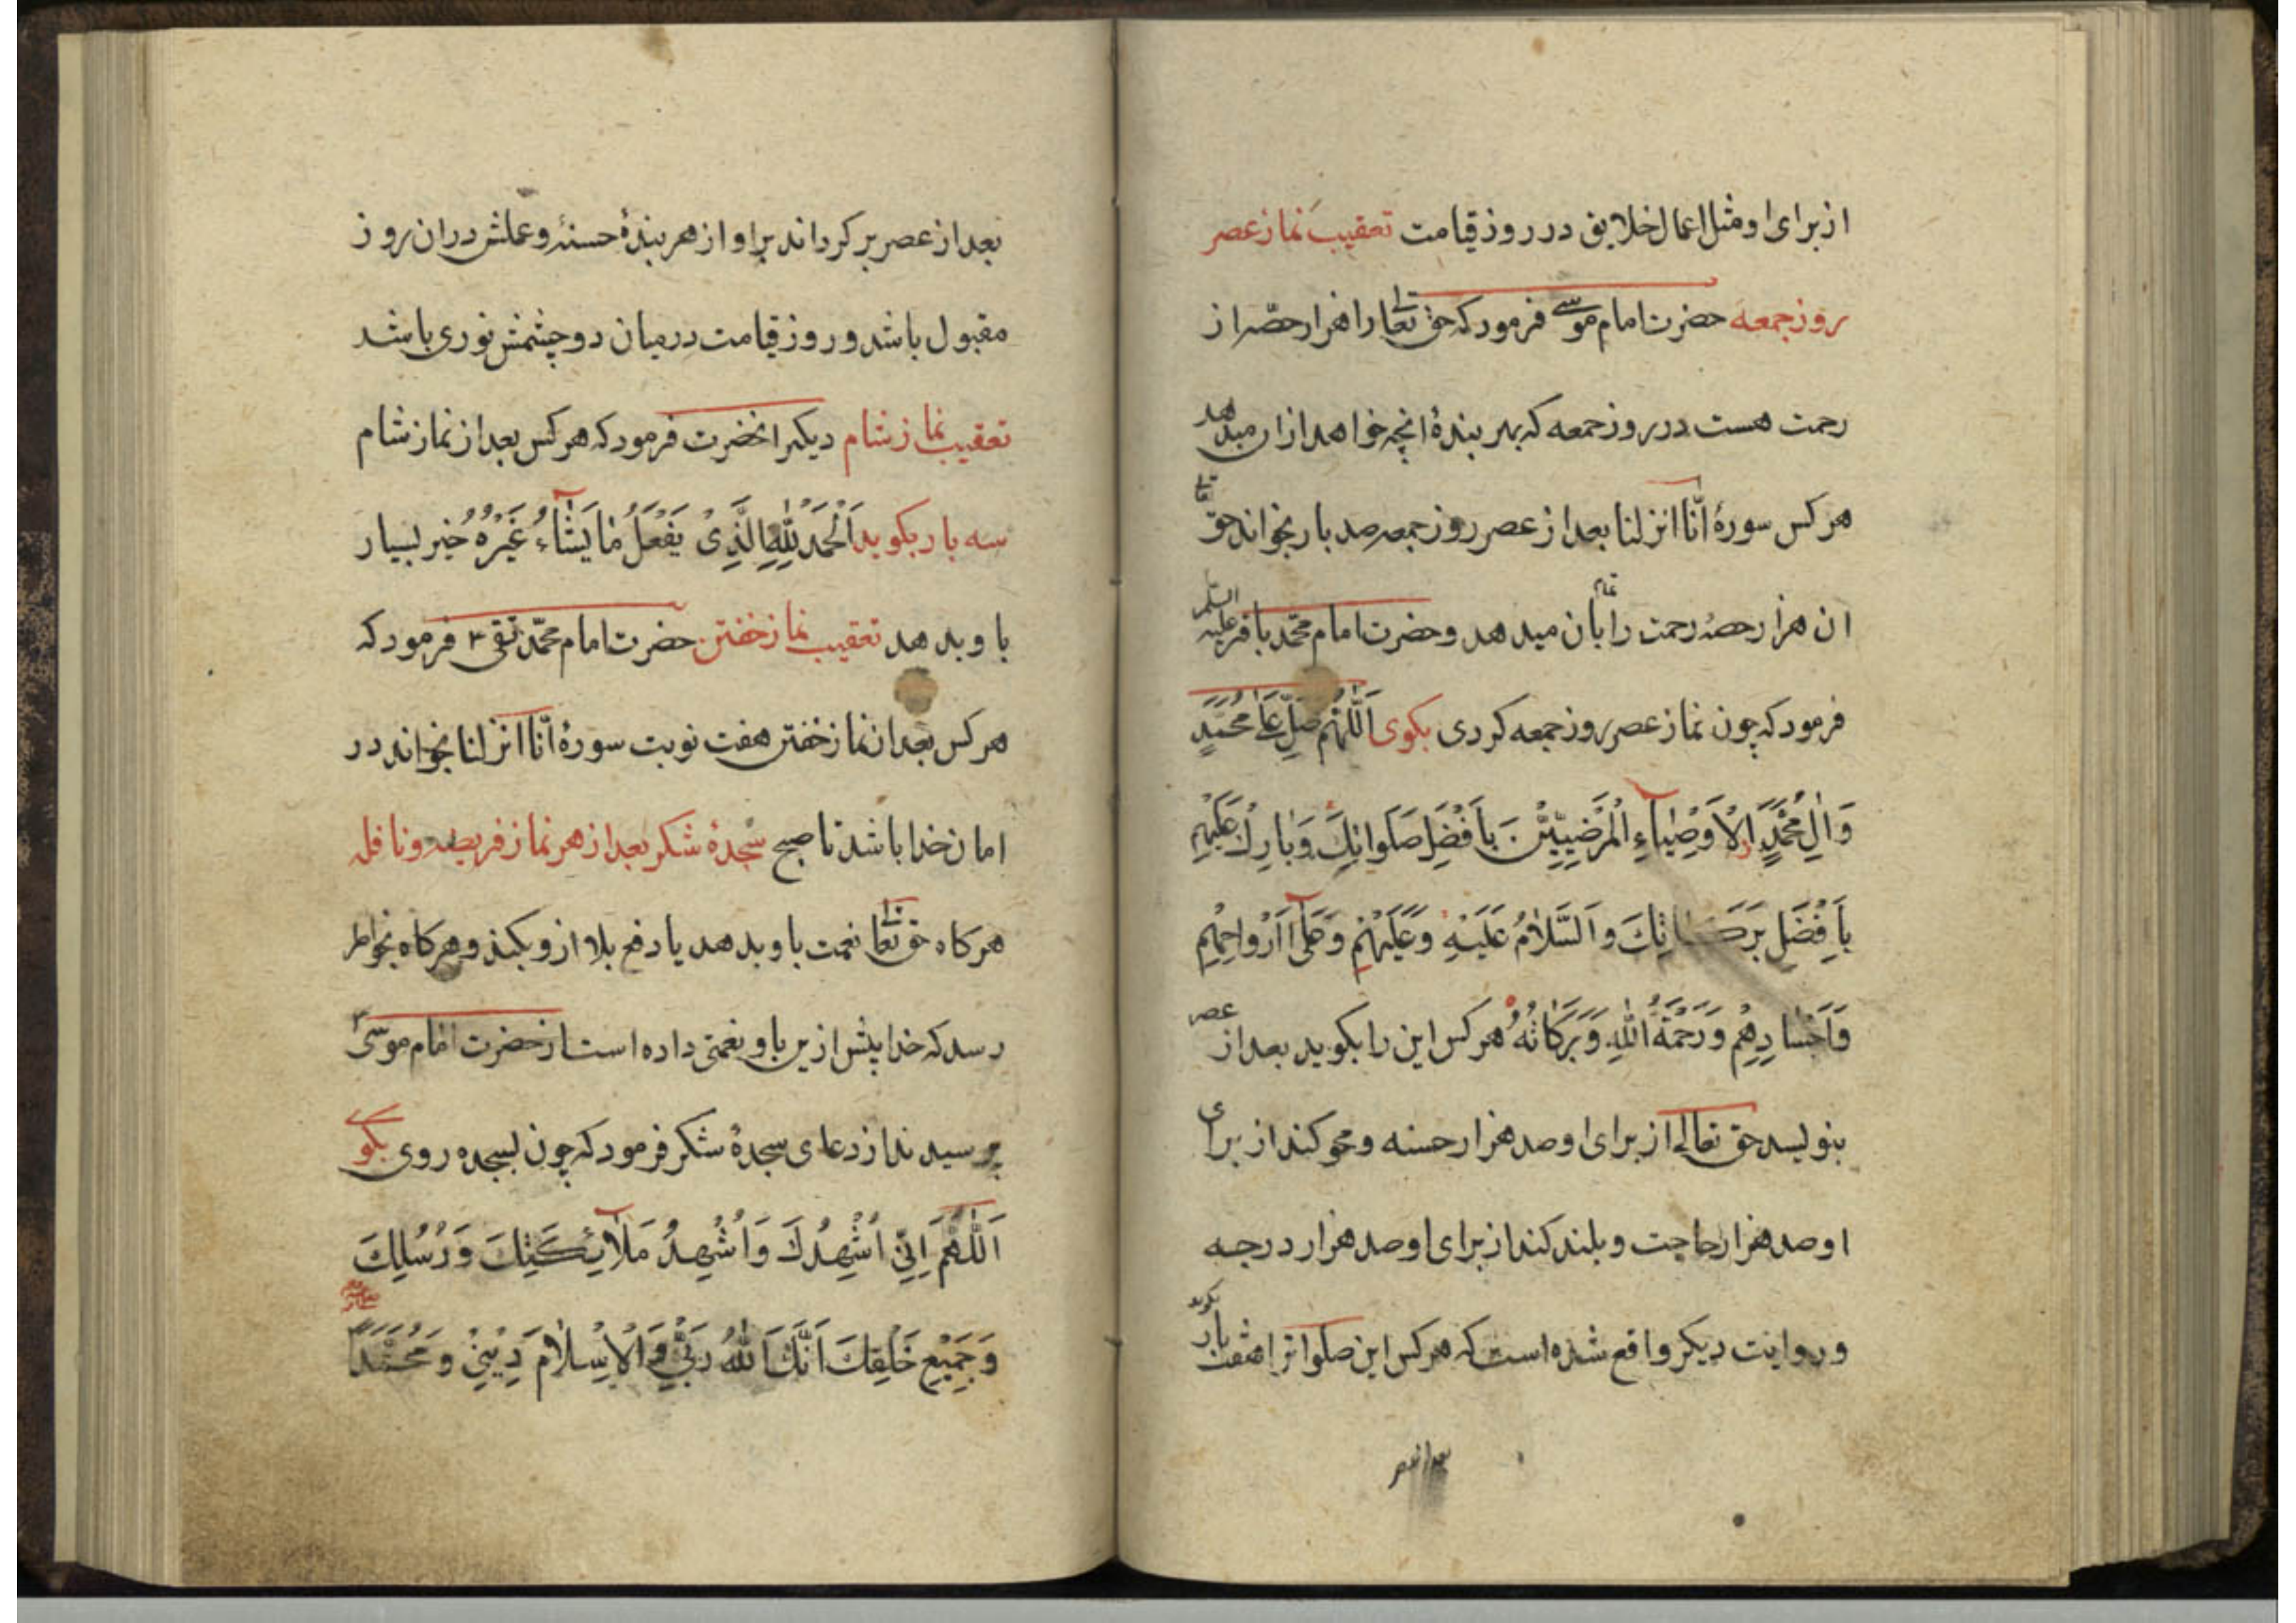 از برای او مثل اعمال خلایق در روز قیامت تعقیب نماز عصر
روز جمعه حضرت امام موسی فرمود که حق تعا را هزار حصه از
رحمت هست در روز جمعه که بهر بندهٔ انچه خواهد ازان میدهد
هر کس سورهٔ انّا انزلنا بعد از عصر روز جمعه صد بار بخواند حق تعا
ان هزار حصهٔ رحمت را تمام بان میدهد و حضرت امام محمّد باقر علیه السلم
فرمود که چون نماز عصر روز جمعه کردی بکوی اَللّٰهُمَّ صَلِّ عَلٰی مُحَمَّدٍ
وَاٰلِ مُحَمَّدٍ الْاَوْصِیٰاءِ الْمَرْضِیِّیْنَ بِاَفْضَلِ صَلَوٰاتِكَ وَبٰارِكْ عَلَیْهِمْ
بِاَفْضَلِ بَرَكٰاتِكَ وَالسَّلٰامُ عَلَیْهِ وَعَلَیْهِمْ وَعَلٰی اَرْوٰاحِهِمْ
وَاَجْسٰادِهِمْ وَرَحْمَةُ اللّٰهِ وَبَرَكٰاتُهُ هر کس این را بکوید بعد از عصر
بنویسد حق تعالی از برای او صد هزار حسنه و محو کند از برای
او صد هزار حاجت و بلند کند از برای او صد هزار درجه
و روایت دیکر واقع شده است که هر کس این صلوات را هفت بار بکوید
بعد از عصر
بعد از عصر بر کرداند براو از هر بندهٔ حسنهٔ و عملش دران روز
مقبول باشد و روز قیامت درمیان دو چشمش نوری باشد
تعقیب نماز شام دیکر انحضرت فرمود که هر کس بعد از نماز شام
سه بار بکوید اَلْحَمْدُ لِلّٰهِ الَّذِیْ یَفْعَلُ مٰا یَشٰاءُ غَیْرُهُ خیر بسیار
باو بدهد تعقیب نماز خفتن حضرت امام محمّد تقی ع فرمود که
هر کس بعد از نماز خفتن هفت نوبت سورهٔ انّا انزلنا بخواند در
امان خدا باشد تا صبح سجدهٔ شکر بعد از هر نماز فریضه و نافله
هرکاه حق تعا نعمت باو بدهد یا دفع بلا ازو بکند و هرکاه بخواطر
رسد که خدا پیش ازین باو نعمتی داده است از حضرت امام موسی ع
پرسیدند از دعای سجدهٔ شکر فرمود که چون بسجده روی بکوی
اَللّٰهُمَّ اِنِّی اُشْهِدُكَ وَاُشْهِدُ مَلٰائِكَتِكَ وَرُسُلِكَ
وَجَمِیْعِ خَلْقِكَ اَنَّكَ اَللّٰهُ رَبِّی وَالْاِسْلٰامَ دِیْنِیْ وَمُحَمَّدًا